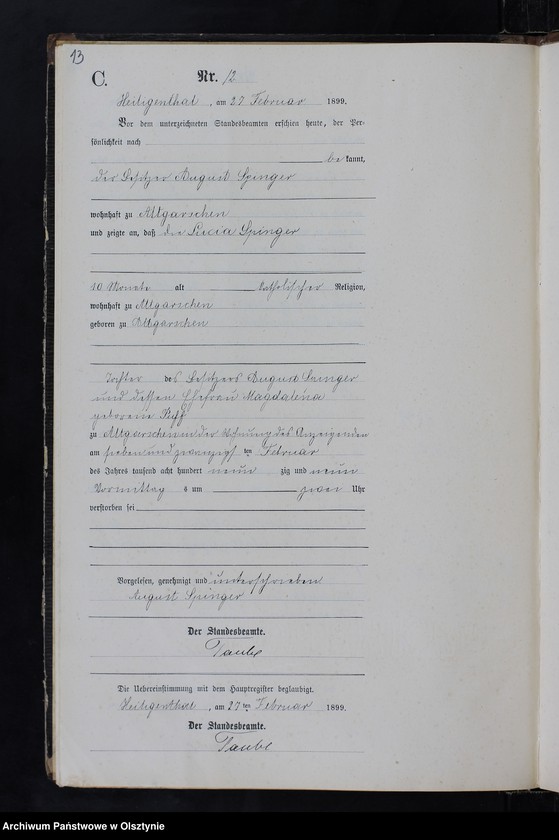 13
C.
Nr. 12
Heiligenthal, am 27 Februar 1899.
Vor dem unterzeichneten Standesbeamten erschien heute, der Per-
sönlichkeit nach
bekannt,
der Besitzer August Spinger
wohnhaft zu Altgarschen
und zeigte an, daß die Lucia Spinger
10 Monate alt katholischer Religion,
wohnhaft zu Altgarschen
geboren zu Altgarschen
Tochter des Besitzers August Spinger
und dessen Ehefrau Magdalena
geborene
zu Altgarschen in der Wohnung des Anzeigenden
am siebenundzwanzigsten Februar
des Jahres tausend acht hundert neunzig und neun
Vormittags um zwei Uhr
verstorben sei
Vorgelesen, genehmigt und unterschrieben
August Spinger
Der Standesbeamte.
Taube
Die Uebereinstimmung mit dem Hauptregister beglaubigt.
Heiligenthal, am 27ten Februar 1899.
Der Standesbeamte.
Taube
Archiwum Państwowe w Olsztynie